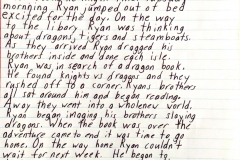 mornning Ryan jumped out of bed
excited for the day. On the way
to the libary, Ryan was thinking
about dragons, tigers and steamboats.
As they arrived Ryan dragged his
brothers inside and done each isle.
Ryan was in search of a dragon book.
He found knights vs dragons and they
rushed off to a corner. Ryans brothers
all sat around him and began reading.
Away they went into a wholenew world.
Ryan began imaging his brothers slaying
dragons. When the book was over the
adventure came to end it was time to go
home. On the way home Ryan couldn't
wait for next week. He began to